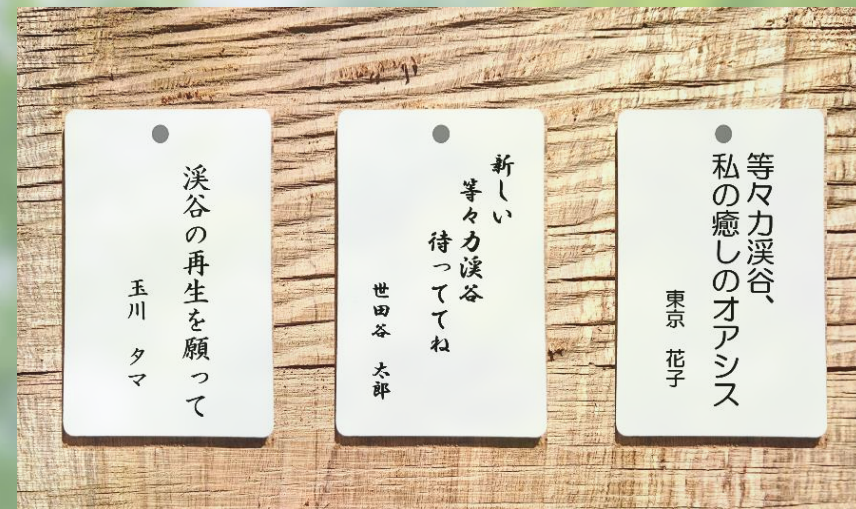 等々力渓谷、
私の癒しのオアシス
東京 花子
新しい
等々力渓谷
待っててね
世田谷 太郎
渓谷の再生を願って
玉川 タマ